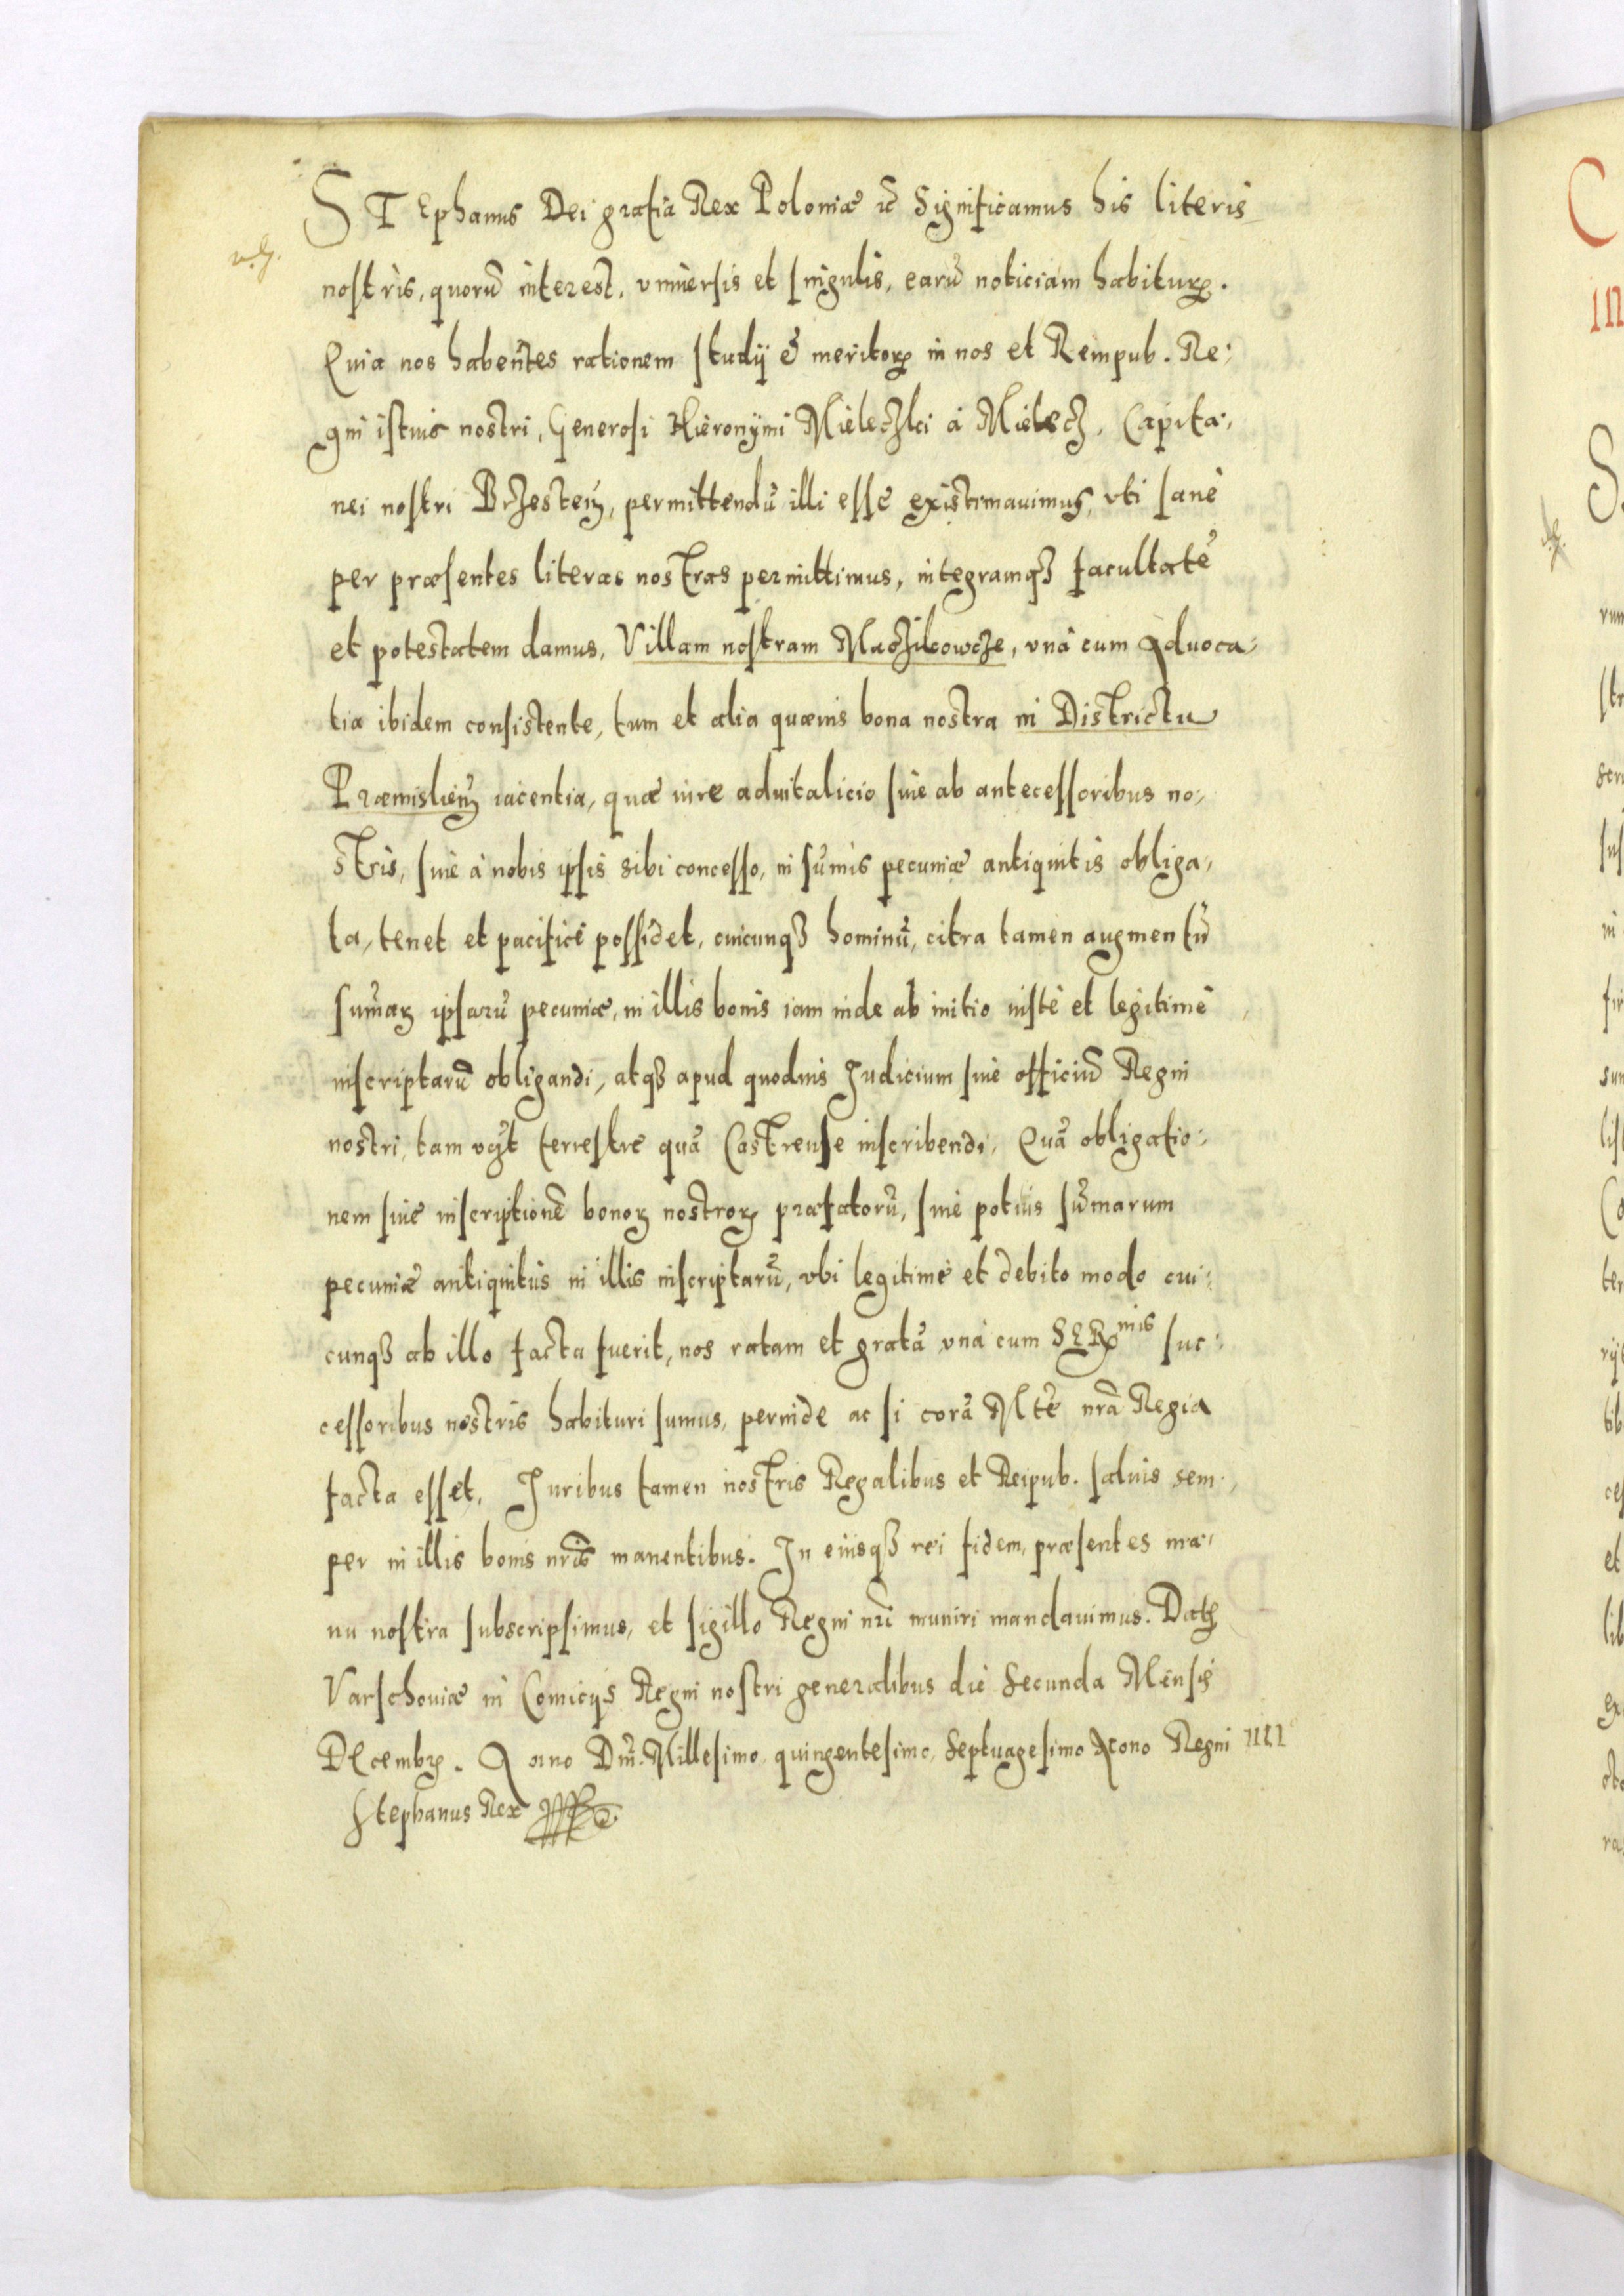 STEphanus Dei gratia Rex Poloniæ &c̃ Significamus his literis
nostris, quorũ interest, vniuersis et singulis, earũ noticiam habiturꝝ.
Quia nos habentes rationem studij & meritorꝝ in nos et Rempub. Re:
gni istius nostri, Generosi Hieronymi Mieleczki à Mielecz, Capita,
nei nostri Brzesteñ, permittendũ illi esse existimauimus, vti sanè
per præsentes literas nostras permittimus, integramqꝫ facultatẽ
et potestatem damus, Villam nostram Maczkowcze, vnà cum Aduoca,
tia ibidem consistente, tum et alia quæuis bona nostra in Districtu
Præmislieñ iacentia, quæ iure aduitalicio siue ab antecessoribus no,
stris, siue à nobis ipsis sibi concesso, in sũmis pecuniæ antiquitùs obliga,
ta, tenet et pacificè possidet, cuicunqꝫ hominũ, citra tamen augmentũ
sũmarꝝ ipsarũ pecuniæ, in illis bonis iam inde ab initio iustè et legitimè
inscriptarũ obligandi, atqꝫ apud quoduis Judicium siue officiũ Regni
nostri, tam vczt terrestre quã Castrense inscribendi, Quã obligatio:
nem siue inscriptionẽ bonorꝝ nostrorꝝ præfatorũ, siue potius sũmarum
pecuniæ antiquitùs in illis inscriptarũ, vbi legitimè et debito modo cui:
cunqꝫ ab illo facta fuerit, nos ratam et gratã vnà cum SERmis suc:
cessoribus nostris habituri sumus, perinde ac si corã Mtẽ nrã Regia
facta esset, Juribus tamen nostris Regalibus et Reipub. saluis sem,
per in illis bonis nr̃is manentibus. In eiusqꝫ rei fidem, præsentes ma,
nu nostra subscripsimus, et sigillo Regni nr̃i muniri mandauimus. Datꝫ
Varschouiæ in Comicijs Regni nostri generalibus die Secunda Mensis
DEcembrꝭ. Anno Dñi. Millesimo quingentesimo, Septuagesimo Nono Regni IIII
Stephanus Rex